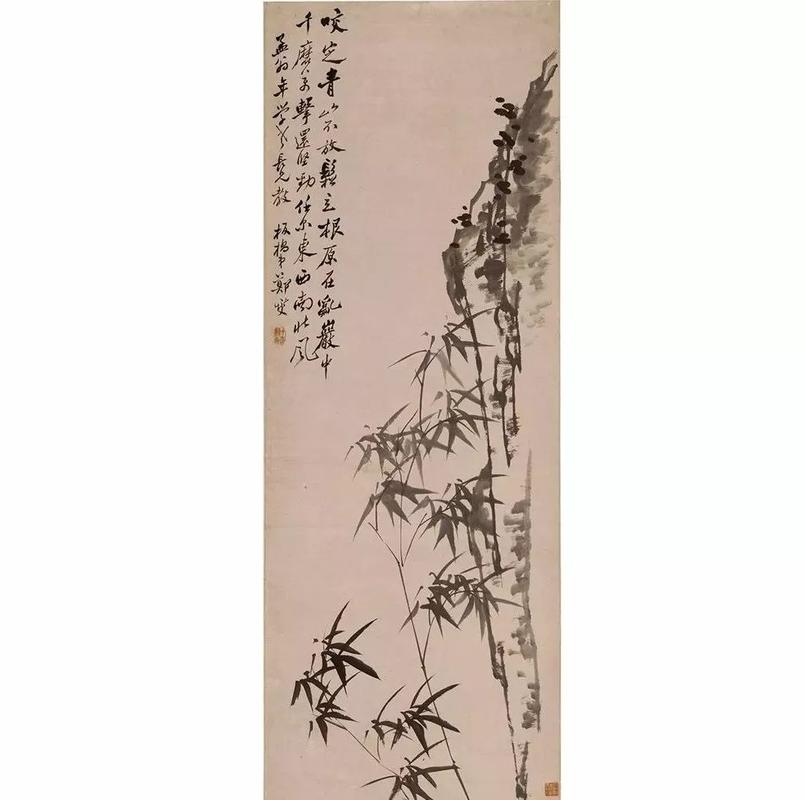 咬定青山不放鬆立根原在亂巖中
千磨萬擊還堅勁任尔東西南北風
孟翁年学老長兄教 板橋弟鄭燮